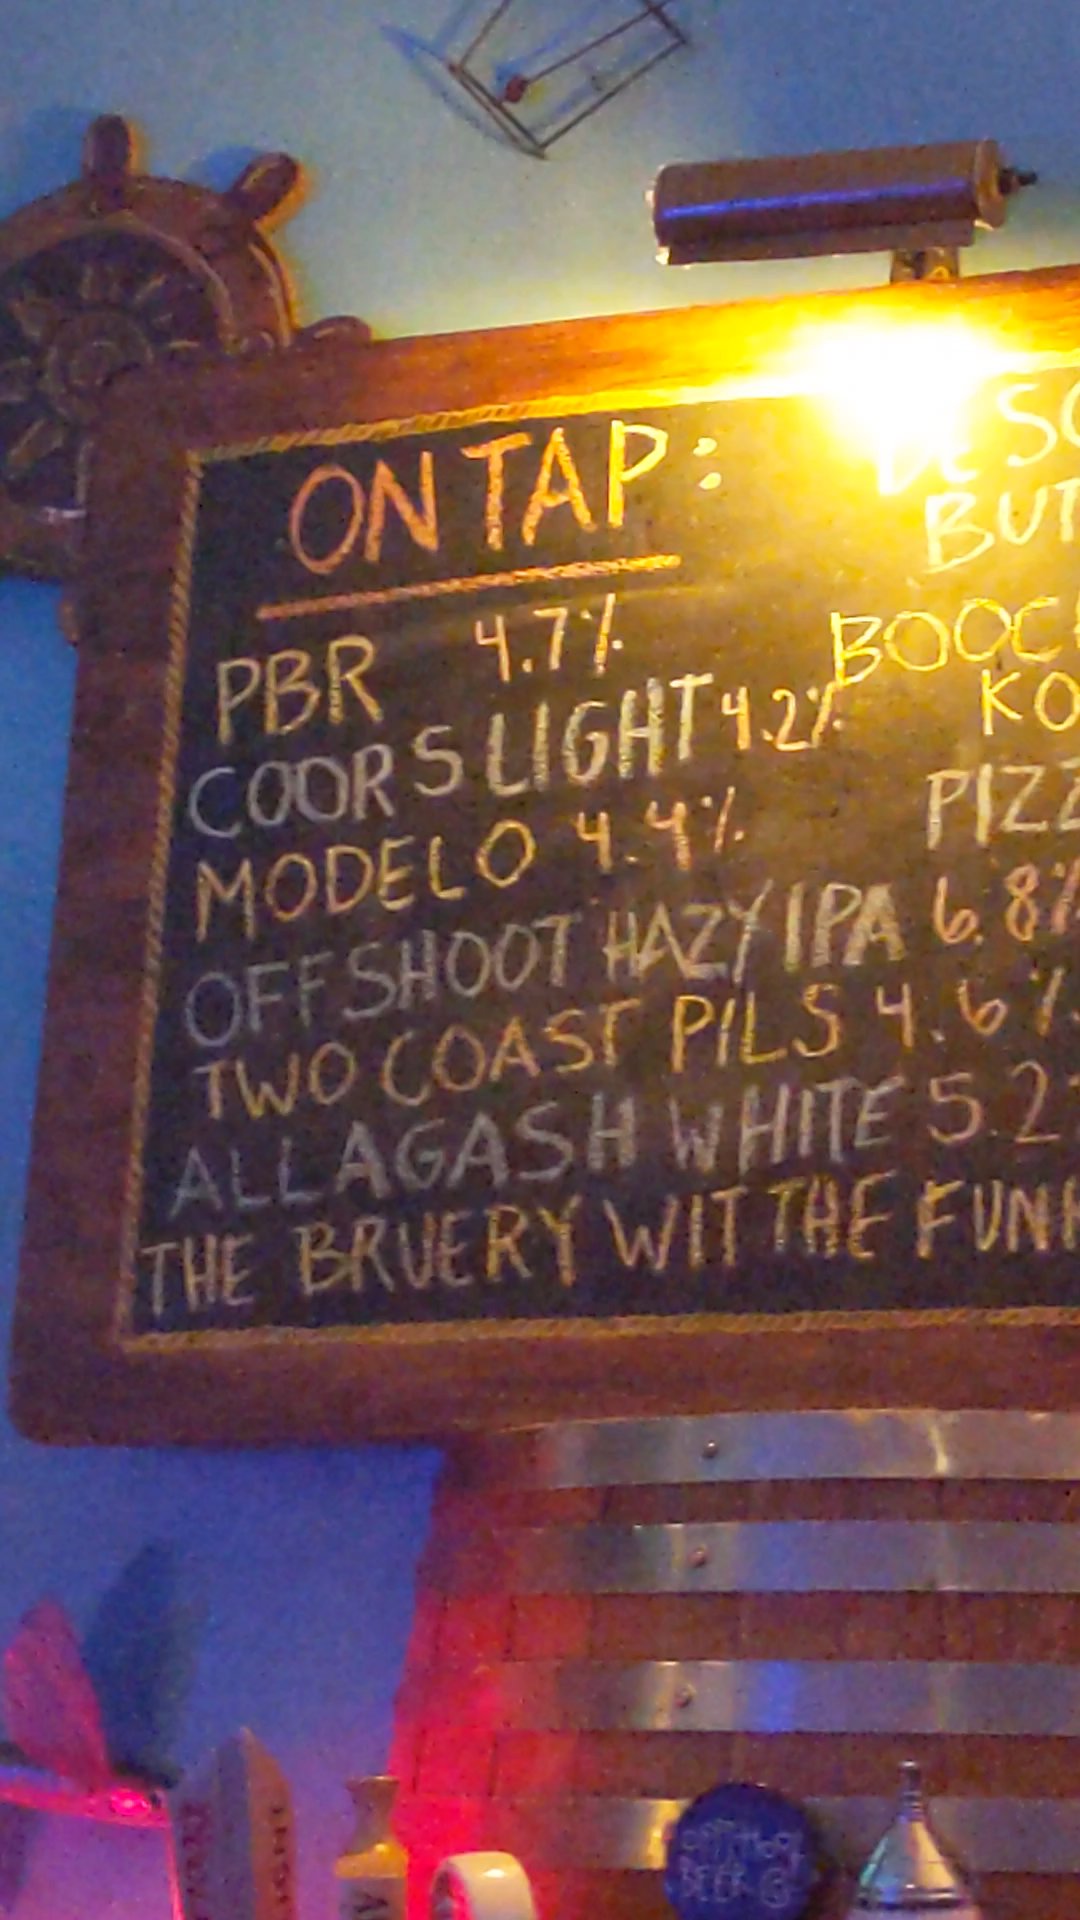 ON TAP:
PBR 4.7%
COORS LIGHT 4.2%
MODELO 4.4%
OFFSHOOT HAZY IPA 6.8%
TWO COAST PILS 4.6%
ALLAGASH WHITE 5.2
THE BRUERY WIT THE FUNK
DESC
BUT
BOOC
KO
PIZZ
BEER